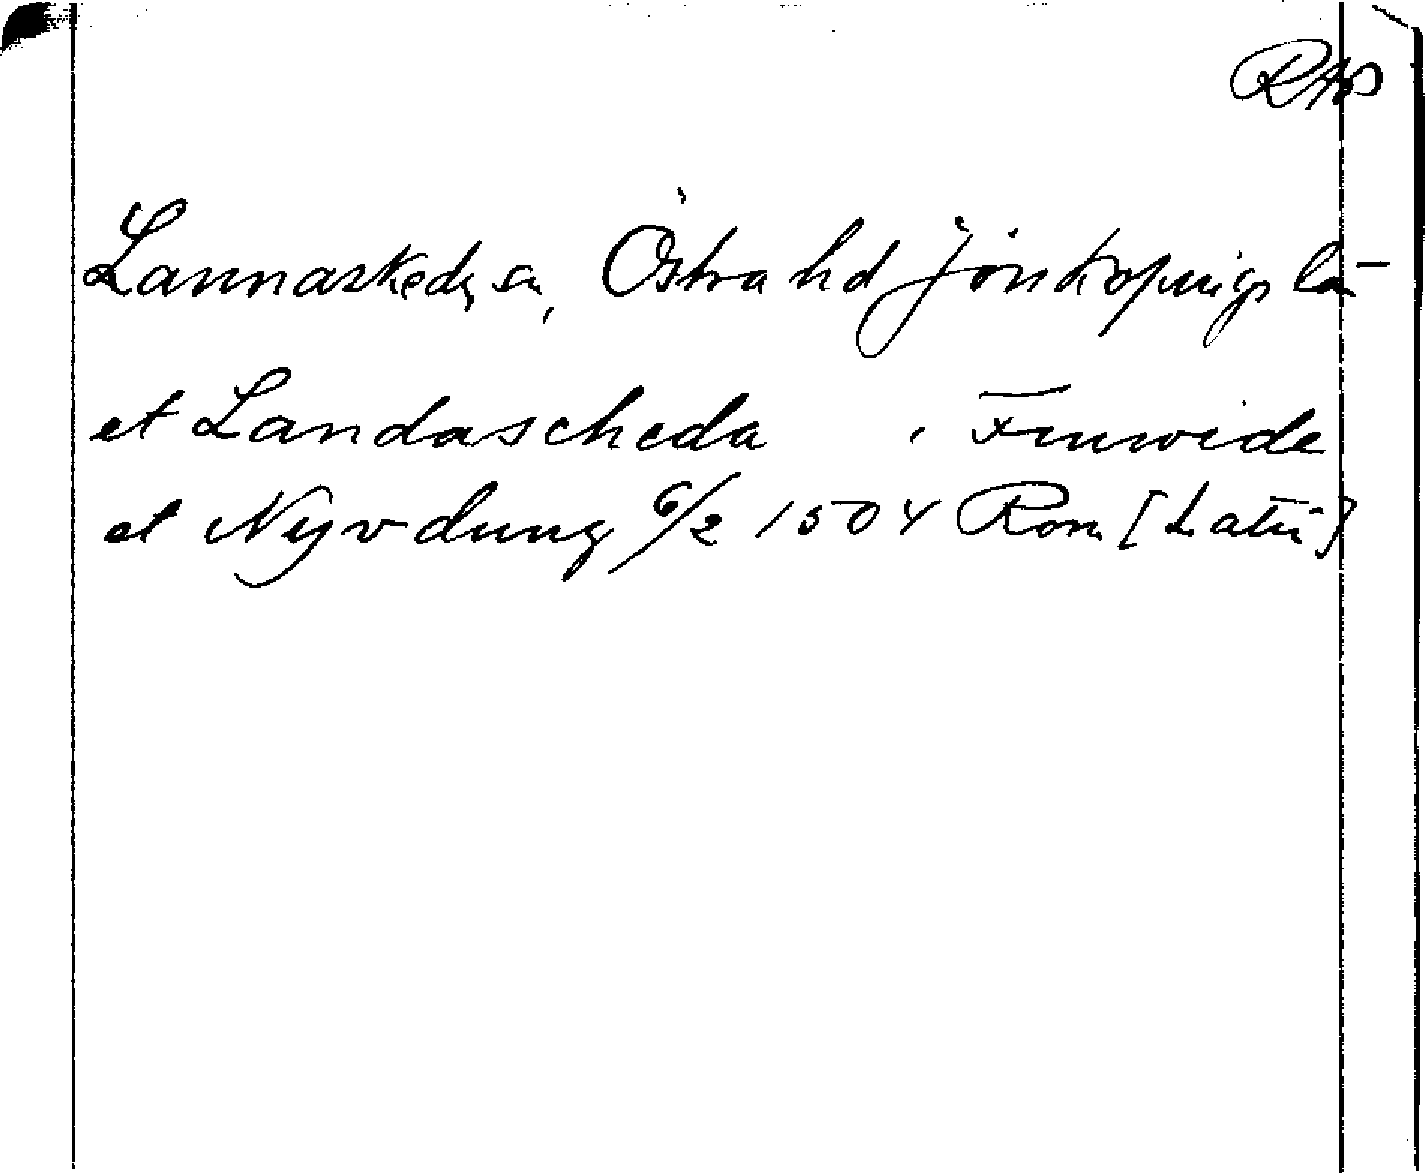 RAP
Lannaskede sn, Östra hd Jönköpings län
et Landascheda , Finwide
et Nyvdung 6/2 1504 Rom [Latin]